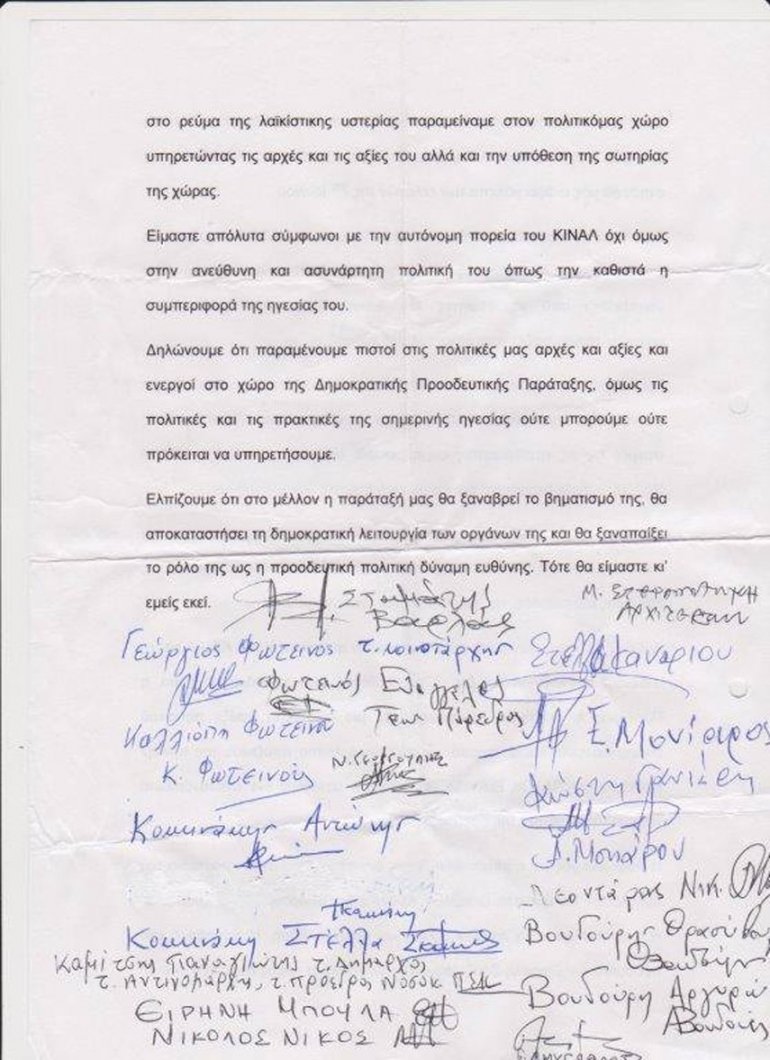 στο ρεύμα της λαϊκίστικης υστερίας παραμείναμε στον πολιτικόμας χώρο
υπηρετώντας τις αρχές και τις αξίες του αλλά και την υπόθεση της σωτηρίας
της χώρας.
Είμαστε απόλυτα σύμφωνοι με την αυτόνομη πορεία του ΚΙΝΑΛ όχι όμως
στην ανεύθυνη και ασυνάρτητη πολιτική του όπως την καθιστά η
συμπεριφορά της ηγεσίας του.
Δηλώνουμε ότι παραμένουμε πιστοί στις πολιτικές μας αρχές και αξίες και
ενεργοί στο χώρο της Δημοκρατικής Προοδευτικής Παράταξης, όμως τις
πολιτικές και τις πρακτικές της σημερινής ηγεσίας ούτε μπορούμε ούτε
πρόκειται να υπηρετήσουμε.
Ελπίζουμε ότι στο μέλλον η παράταξή μας θα ξαναβρεί το βηματισμό της, θα
αποκαταστήσει τη δημοκρατική λειτουργία των οργάνων της και θα ξαναπαίξει
το ρόλο της ως η προοδευτική πολιτική δύναμη ευθύνης. Τότε θα είμαστε κι'
εμείς εκεί.
Σταμάτης
Βαρλάς
Γεώργιος Φωτεινος τ.
Φωτεινός Ευάγγελος
Καλλιόπη Φωτεινου
Κ. Φωτεινού
Σ. Μονίαρος
Κοκκινάκης Αντώνης
Λ. Μονιάρου
Λεοντάρας Νικ.
Κοκκινάκη Στέλλα
Βουδούρης Θρασύβου
Καμίτσης Παναγιώτης τ. Δήμαρχος
τ. Αντινομάρχη, τ. Πρόεδρος
Βουδούρη Αργυρώ
ΕΙΡΗΝΗ ΜΠΟΥΛΑ
ΝΙΚΟΛΟΣ ΝΙΚΟΣ